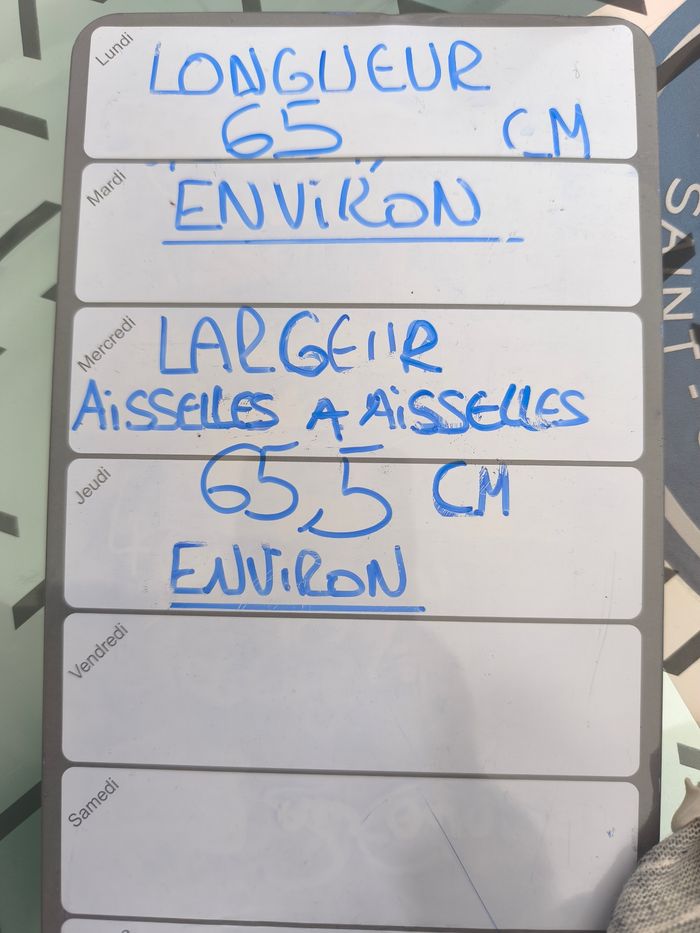 Lundi
LONGUEUR
65 CM
Mardi
ENVIRON
Mercredi
LARGEUR
AISSELLES A AISSELLES
Jeudi
65,5 CM
ENVIRON
Vendredi
Samedi
SAINT